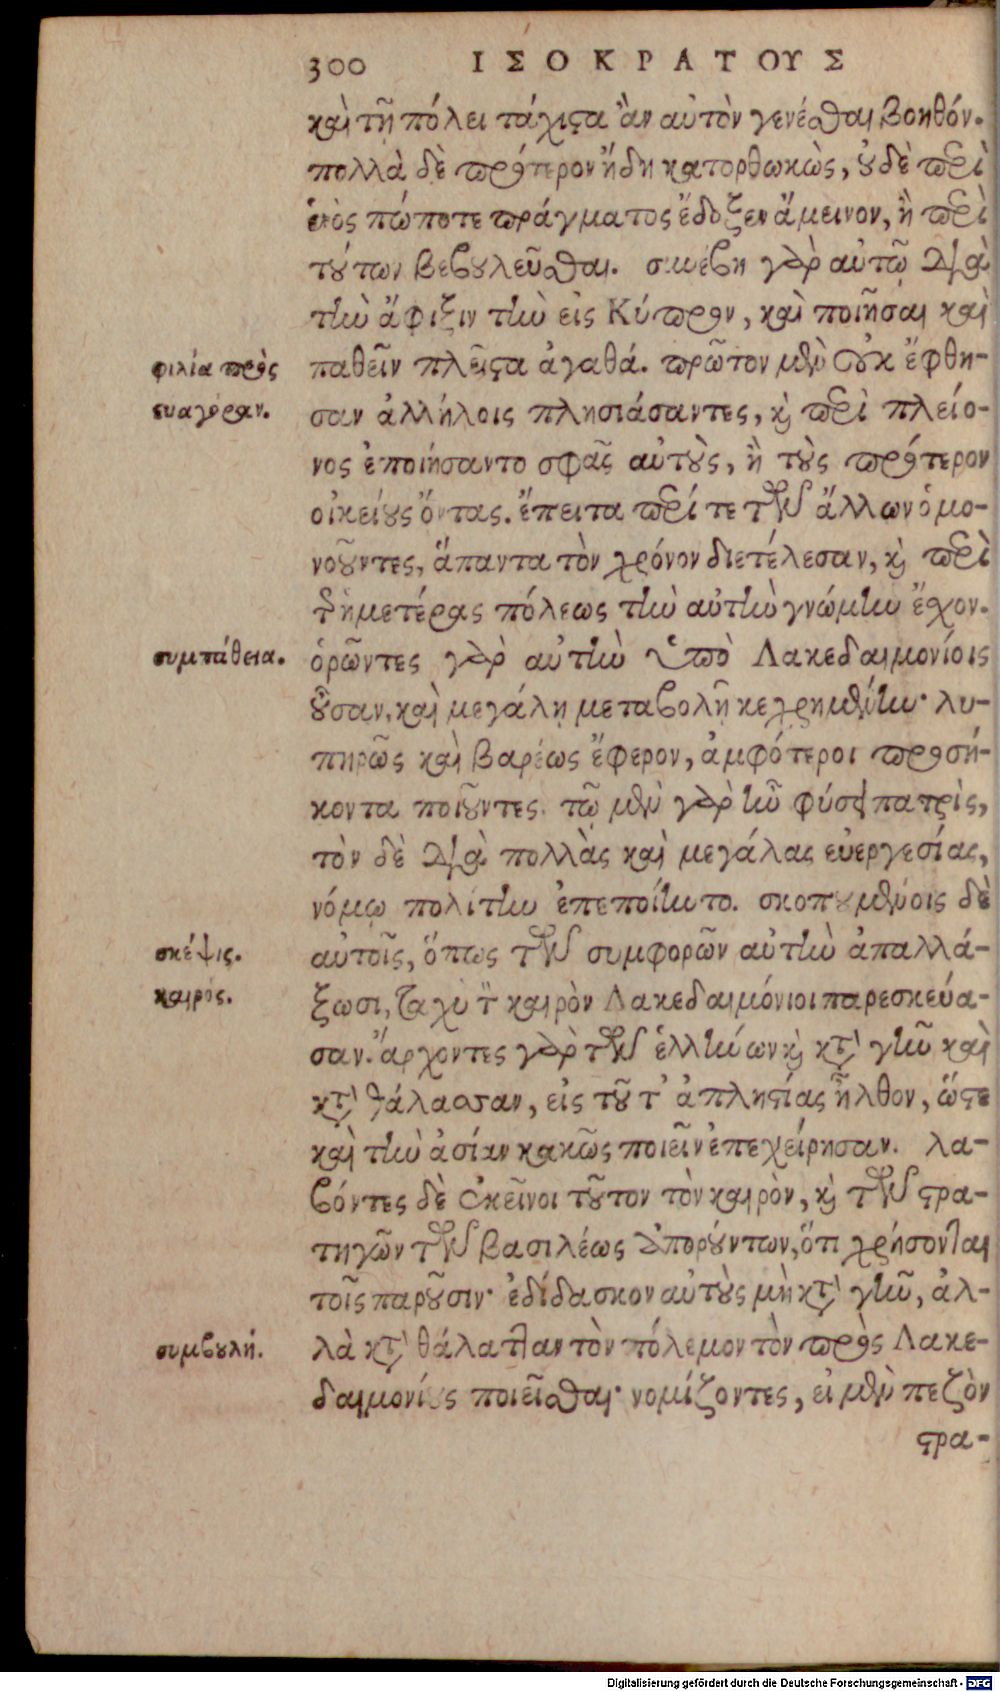 300 ΙΣΟΚΡΑΤΟΥΣ
καὶ τῇ πόλει τάχιστα ἂν αὐτὸν γενέσθαι βοηθόν.
πολλὰ δὲ πρότερον ἤδη κατορθωκὼς, οὐδὲ περὶ
ἑνὸς πώποτε πράγματος ἔδοξεν ἄμεινον, ἢ περὶ
τούτων βεβουλεῦσθαι. συνέβη γὰρ αὐτῷ διὰ
τὴν ἄφιξιν τὴν εἰς Κύπρον, καὶ ποιῆσαι καὶ
φιλία πρὸς
παθεῖν πλεῖστα ἀγαθά. πρῶτον μὲν οὐκ ἔφθη-
ευαγόραν.
σαν ἀλλήλοις πλησιάσαντες, καὶ περὶ πλείο-
νος ἐποιήσαντο σφᾶς αὐτοὺς, ἢ τοὺς πρότερον
οἰκείους ὄντας. ἔπειτα περί τε τῶν ἄλλων ὁμο-
νοοῦντες, ἅπαντα τὸν χρόνον διετέλεσαν, καὶ περὶ
τῆς ἡμετέρας πόλεως τὴν αὐτὴν γνώμην ἔχον.
συμπάθεια.
ὁρῶντες γὰρ αὐτὴν ὑπὸ Λακεδαιμονίοις
οὖσαν, καὶ μεγάλῃ μεταβολῇ κεχρημένην· λυ-
πηρῶς καὶ βαρέως ἔφερον, ἀμφότεροι προσή-
κοντα ποιοῦντες. τῷ μὲν γὰρ ἦν φύσει πατρὶς,
τὸν δὲ διὰ πολλὰς καὶ μεγάλας εὐεργεσίας,
νόμῳ πολίτην ἐπεποίηντο. σκοπουμένοις δὲ
σκέψις.
αὐτοῖς, ὅπως τῶν συμφορῶν αὐτὴν ἀπαλλά-
καιρός.
ξωσι, ταχὺ τὸν καιρὸν Λακεδαιμόνιοι παρεσκεύα-
σαν. ἄρχοντες γὰρ τῶν ἑλλήνων καὶ κατὰ γῆν καὶ
κατὰ θάλασσαν, εἰς τοῦτ' ἀπληστίας ἦλθον, ὥστε
καὶ τὴν ἀσίαν κακῶς ποιεῖν ἐπεχείρησαν. λα-
βόντες δὲ ἐκεῖνοι τοῦτον τὸν καιρὸν, καὶ τῶν στρα-
τηγῶν τῶν βασιλέως ἀπορούντων, ὅτι χρήσονται
τοῖς παροῦσιν· ἐδίδασκον αὐτοὺς μὴ κατὰ γῆν, ἀλ-
συμβουλή.
λὰ κατὰ θάλατταν τὸν πόλεμον τὸν πρὸς Λακε-
δαιμονίους ποιεῖσθαι· νομίζοντες, εἰ μὲν πεζὸν
στρα-
Digitalisierung gefördert durch die Deutsche Forschungsgemeinschaft - DFG